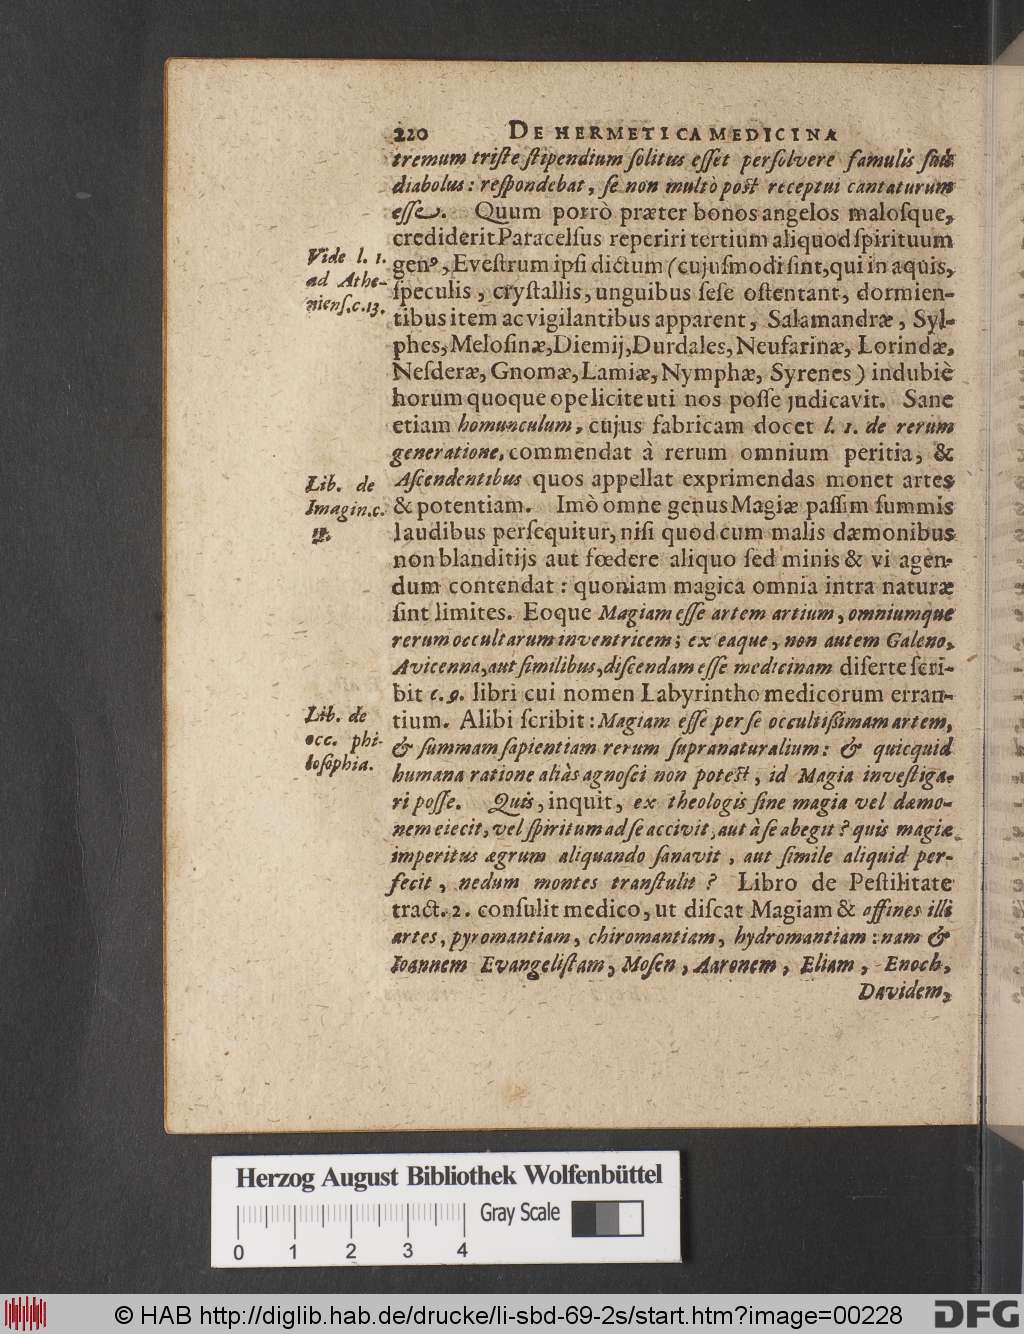 220 DE HERMETICA MEDICINA
tremum triſte ſtipendium ſolitus eſſet perſolvere famulis ſuis
diabolus: reſpondebat, ſe non multò poſt receptui cantaturum
eſſe. Quum porrò præter bonos angelos maloſque,
crediderit Paracelſus reperiri tertium aliquod ſpirituum
genꝰ, Eveſtrum ipſi dictum (cujuſmodi ſint, qui in aquis,
ſpeculis, cryſtallis, unguibus ſeſe oſtentant, dormien-
tibus item ac vigilantibus apparent, Salamandræ, Syl-
phes, Meloſinæ, Diemij, Durdales, Neufarinæ, Lorindæ,
Neſderæ, Gnomæ, Lamiæ, Nymphæ, Syrenes) indubiè
horum quoque ope licite uti nos poſſe judicavit. Sane
etiam homunculum, cujus fabricam docet l. 1. de rerum
generatione, commendat à rerum omnium peritia, &
Aſcendentibus quos appellat exprimendas monet artes
& potentiam. Imò omne genus Magiæ paſſim ſummis
laudibus perſequitur, niſi quod cum malis dæmonibus
non blanditijs aut fœdere aliquo ſed minis & vi agen-
dum contendat: quoniam magica omnia intra naturæ
ſint limites. Eoque Magiam eſſe artem artium, omniumque
rerum occultarum inventricem; ex eaque, non autem Galeno,
Avicenna, aut ſimilibus, diſcendam eſſe medicinam diſerte ſcri-
bit c. 9. libri cui nomen Labyrintho medicorum erran-
tium. Alibi ſcribit: Magiam eſſe per ſe occultiſſimam artem,
& ſummam ſapientiam rerum ſupranaturalium: & quicquid
humana ratione aliàs agnoſci non poteſt, id Magia inveſtiga-
ri poſſe. Quis, inquit, ex theologis ſine magia vel dæmo-
nem eiecit, vel ſpiritum ad ſe accivit, aut à ſe abegit? quis magiæ
imperitus ægrum aliquando ſanavit, aut ſimile aliquid per-
fecit, nedum montes tranſtulit? Libro de Peſtilitate
tract. 2. conſulit medico, ut diſcat Magiam & affines illi
artes, pyromantiam, chiromantiam, hydromantiam: nam &
Ioannem Evangeliſtam, Moſen, Aaronem, Eliam, Enoch,
Davidem,
Vide l. 1.
ad Athe-
nienſ. c. 13.
Lib. de
Imagin. c.
Lib. de
occ. phi-
loſophia.
Herzog August Bibliothek Wolfenbüttel
Gray Scale
0 1 2 3 4
© HAB http://diglib.hab.de/drucke/li-sbd-69-2s/start.htm?image=00228
DFG